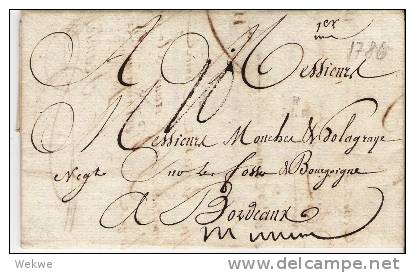 1er
1786
A Messieurs
Messieurs Monches & Delagraye
Negt sur le fossé de Bourgoigne
A Bordeaux
Wekwe
delcampe.net